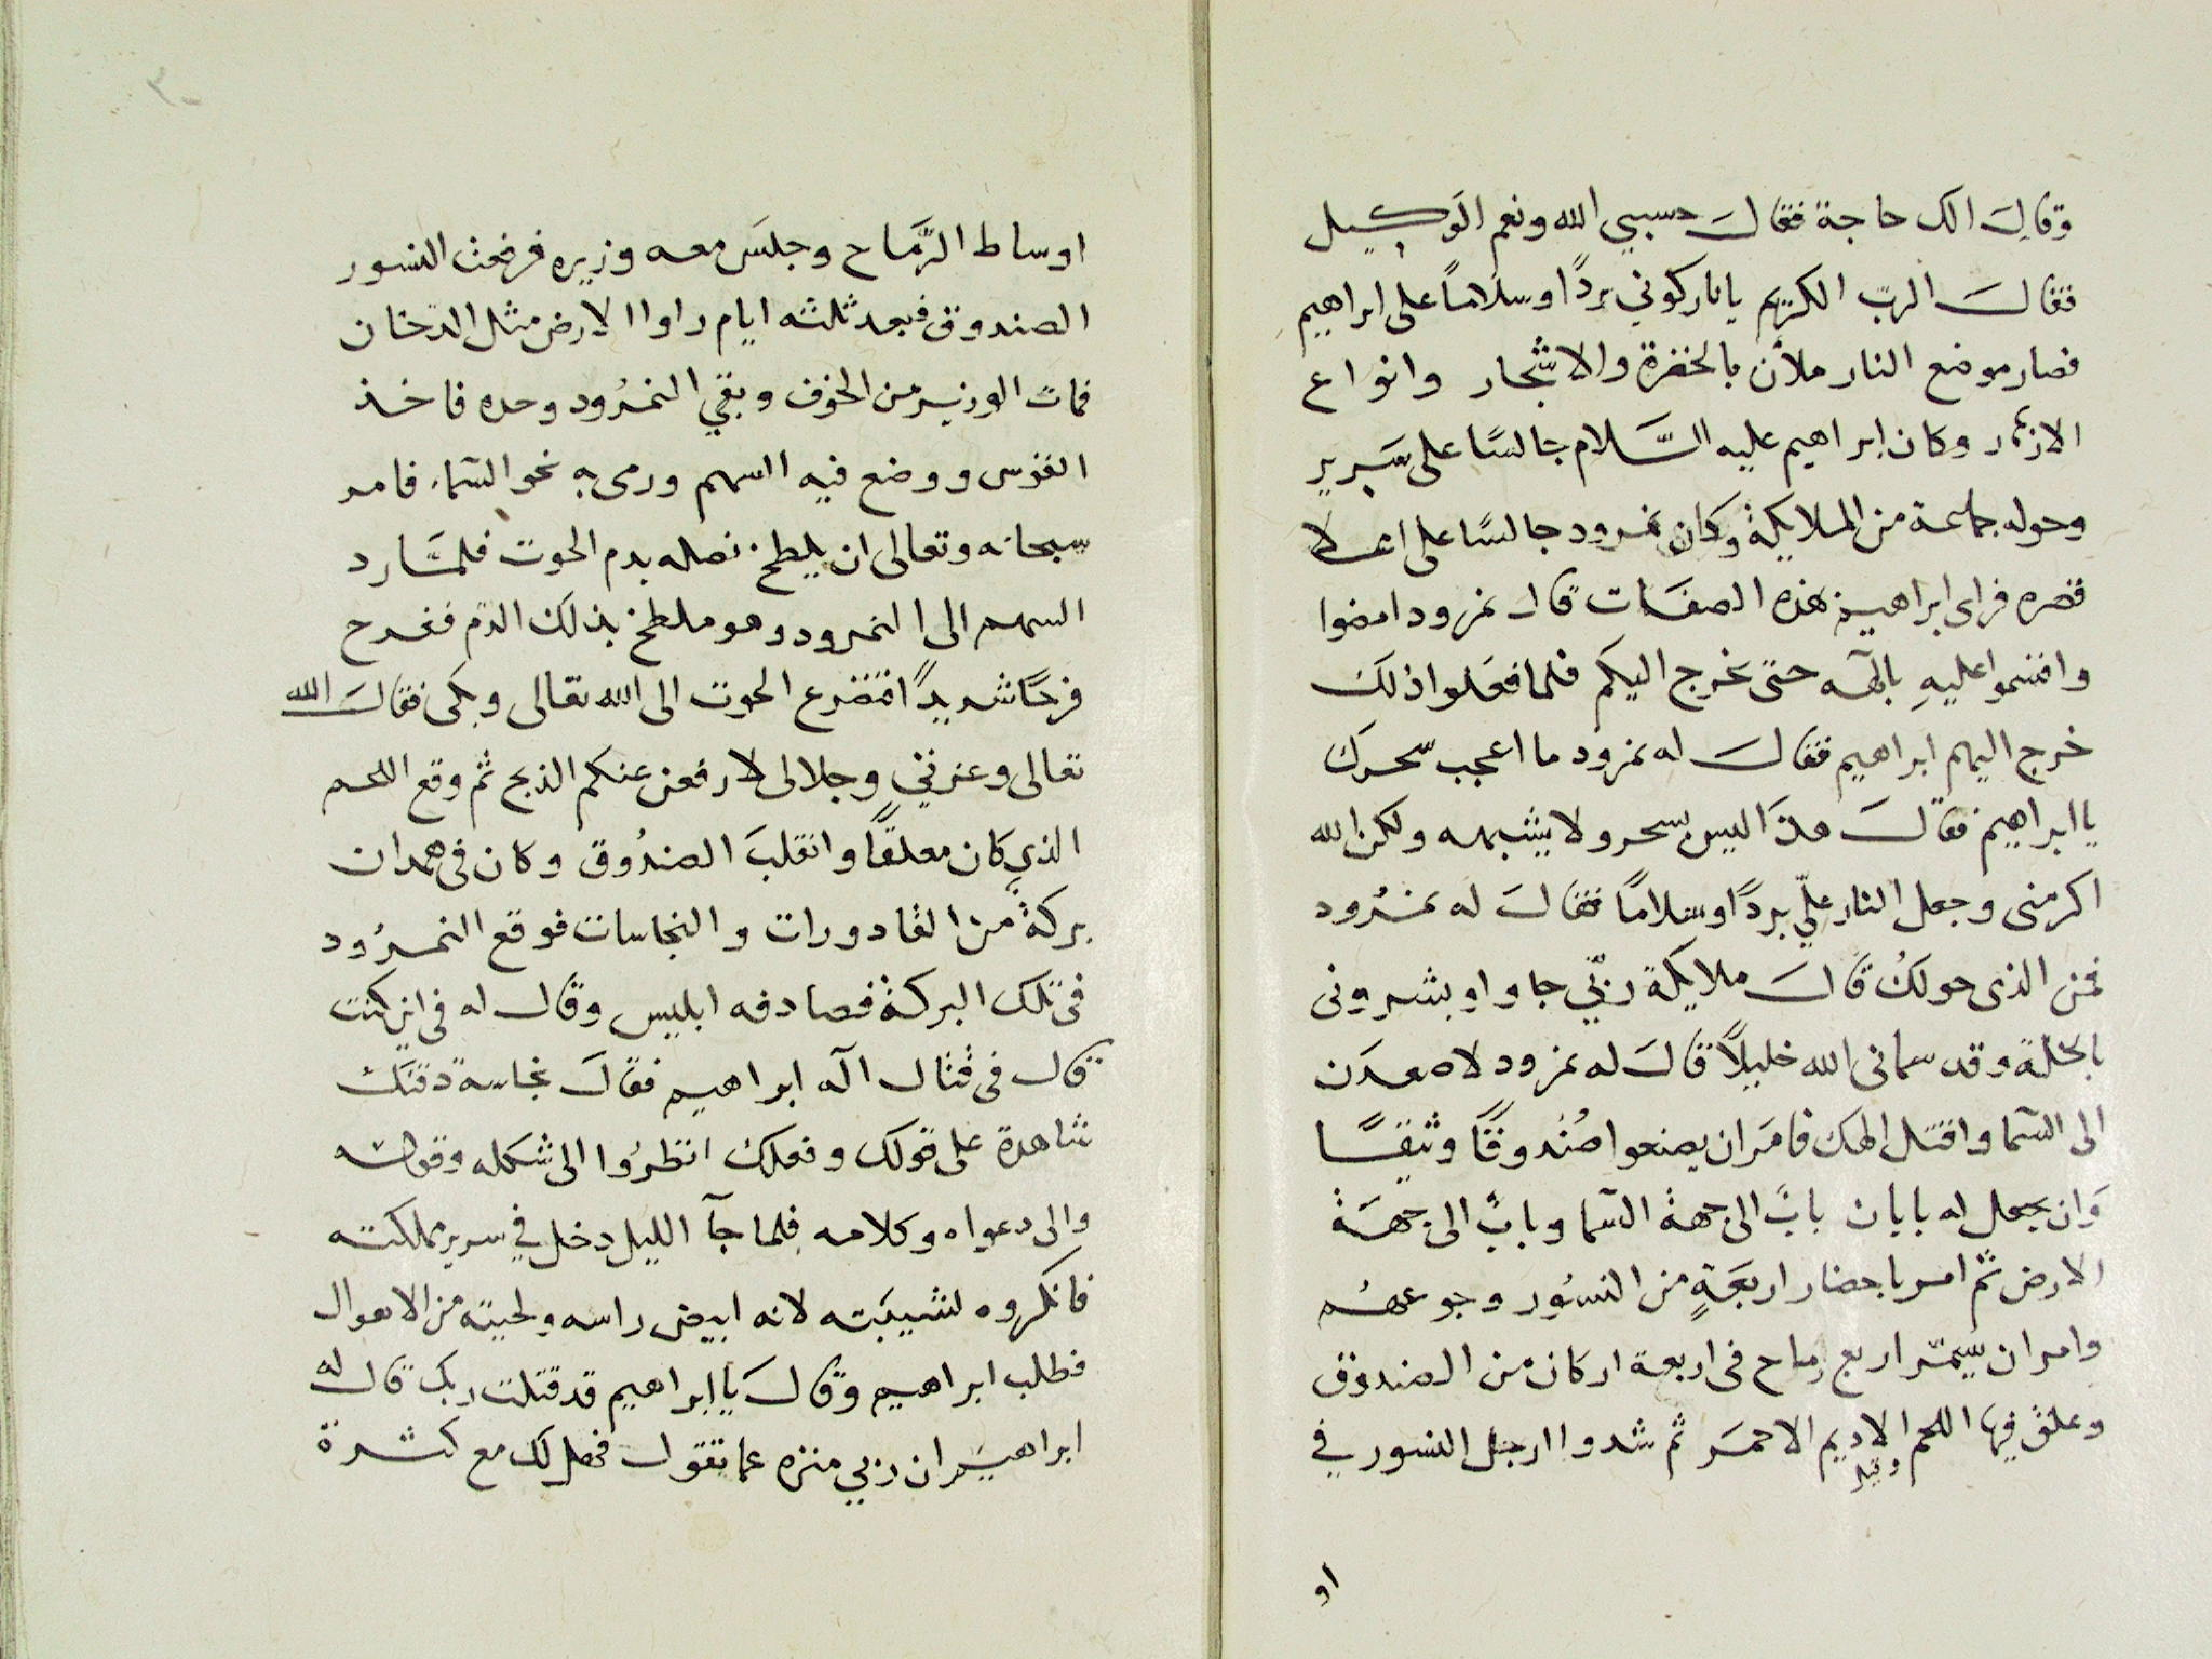 وقال الك حاجة فقال حسبي الله ونعم الوكيل
فقال الرب الكريم يا نار كوني بردًا وسلامًا على ابراهيم
فصار موضع النار ملأن بالخضرة والاشجار وانواع
الازهار وكان ابراهيم عليه السَّلام جالسًا على سَرير
وحوله جماعة من الملايكة وكان نمرود جالسًا على اعلا
قصره فراى ابراهيم بهذه الصفات قال نمرود امضوا
واقسموا عليهِ بالٓهه حتى يخرج اليكم فلما فعَلوا ذلك
خرج اليهم ابراهيم فقال له نمرود ما اعجب سحرك
يا ابراهيم فقال هذا ليس بسحر ولا يشبهه ولكن الله
اكرمنى وجعل النار عليّ بردًا وسلامًا فقال له نمرُود
فمن الذى حولك قال ملايكة ربّي جاوا وبشرونى
بالخلة وقد سمانى الله خليلاً قال له نمرود لاصعدَن
الى السّما واقتل الهك فامَر ان يصنعوا صُندوقًا وثيقًا
وَان يجعل له بابان بابٌ الى جهة السّما وبابٌ الى جهَة
الارض ثم امر باحضار اربعَةٍ من النسُور وجوعهُم
وامر ان يسمّر اربع رماح فى اربعة اركان من الصندوق
وعلق فيها اللحم الاديم الاحمَر ثم شدوا ارجل النسور في
او
اوساط الرَّماح وجلسَ معه وزيره فرفعت النسور
الصندوق فبعد ثلثه ايام راوا الارض مثل الدّخان
فمات الوزير من الخوف وبقي النمرُود وحده فاخذ
القوس ووضع فيه السهم ورمى به نحو السّماء فامر
سبحانه وتعالى ان يلطخ نصله بدم الحوت فلمَّا رد
السهم الى النمرود وهو ملطخ بذلك الدّم ففرح
فرحًا شديدًا فتضرع الحوت الى الله تعالى وبكى فقال الله
تعالى وعزتي وجلالى لارفعن عنكم الذبح ثم وقع اللحم
الذي كان معلقًا وانقلبَ الصندُوق وكان فى همدان
بركةٌ من القادورات والنجاسات فوقع النمرُود
فى تلك البركة فصادفه ابليس وقال له فى اين كنت
قال فى قتال اله ابراهيم فقال نجاسة دقنك
شاهدة على قولك وفعلك انظرُوا الى شكله وقوله
والى دعواه وكلامه فلما جآ الليل دخل في سرير مملكته
فانكروه لشيبَته لانه ابيض راسه ولحيته من الاهوال
فطلب ابراهيم وقال يا ابراهيم قد قتلت ربك قال له
ابراهيم ان ربي منزه عما تقول فهل لك مع كثرة